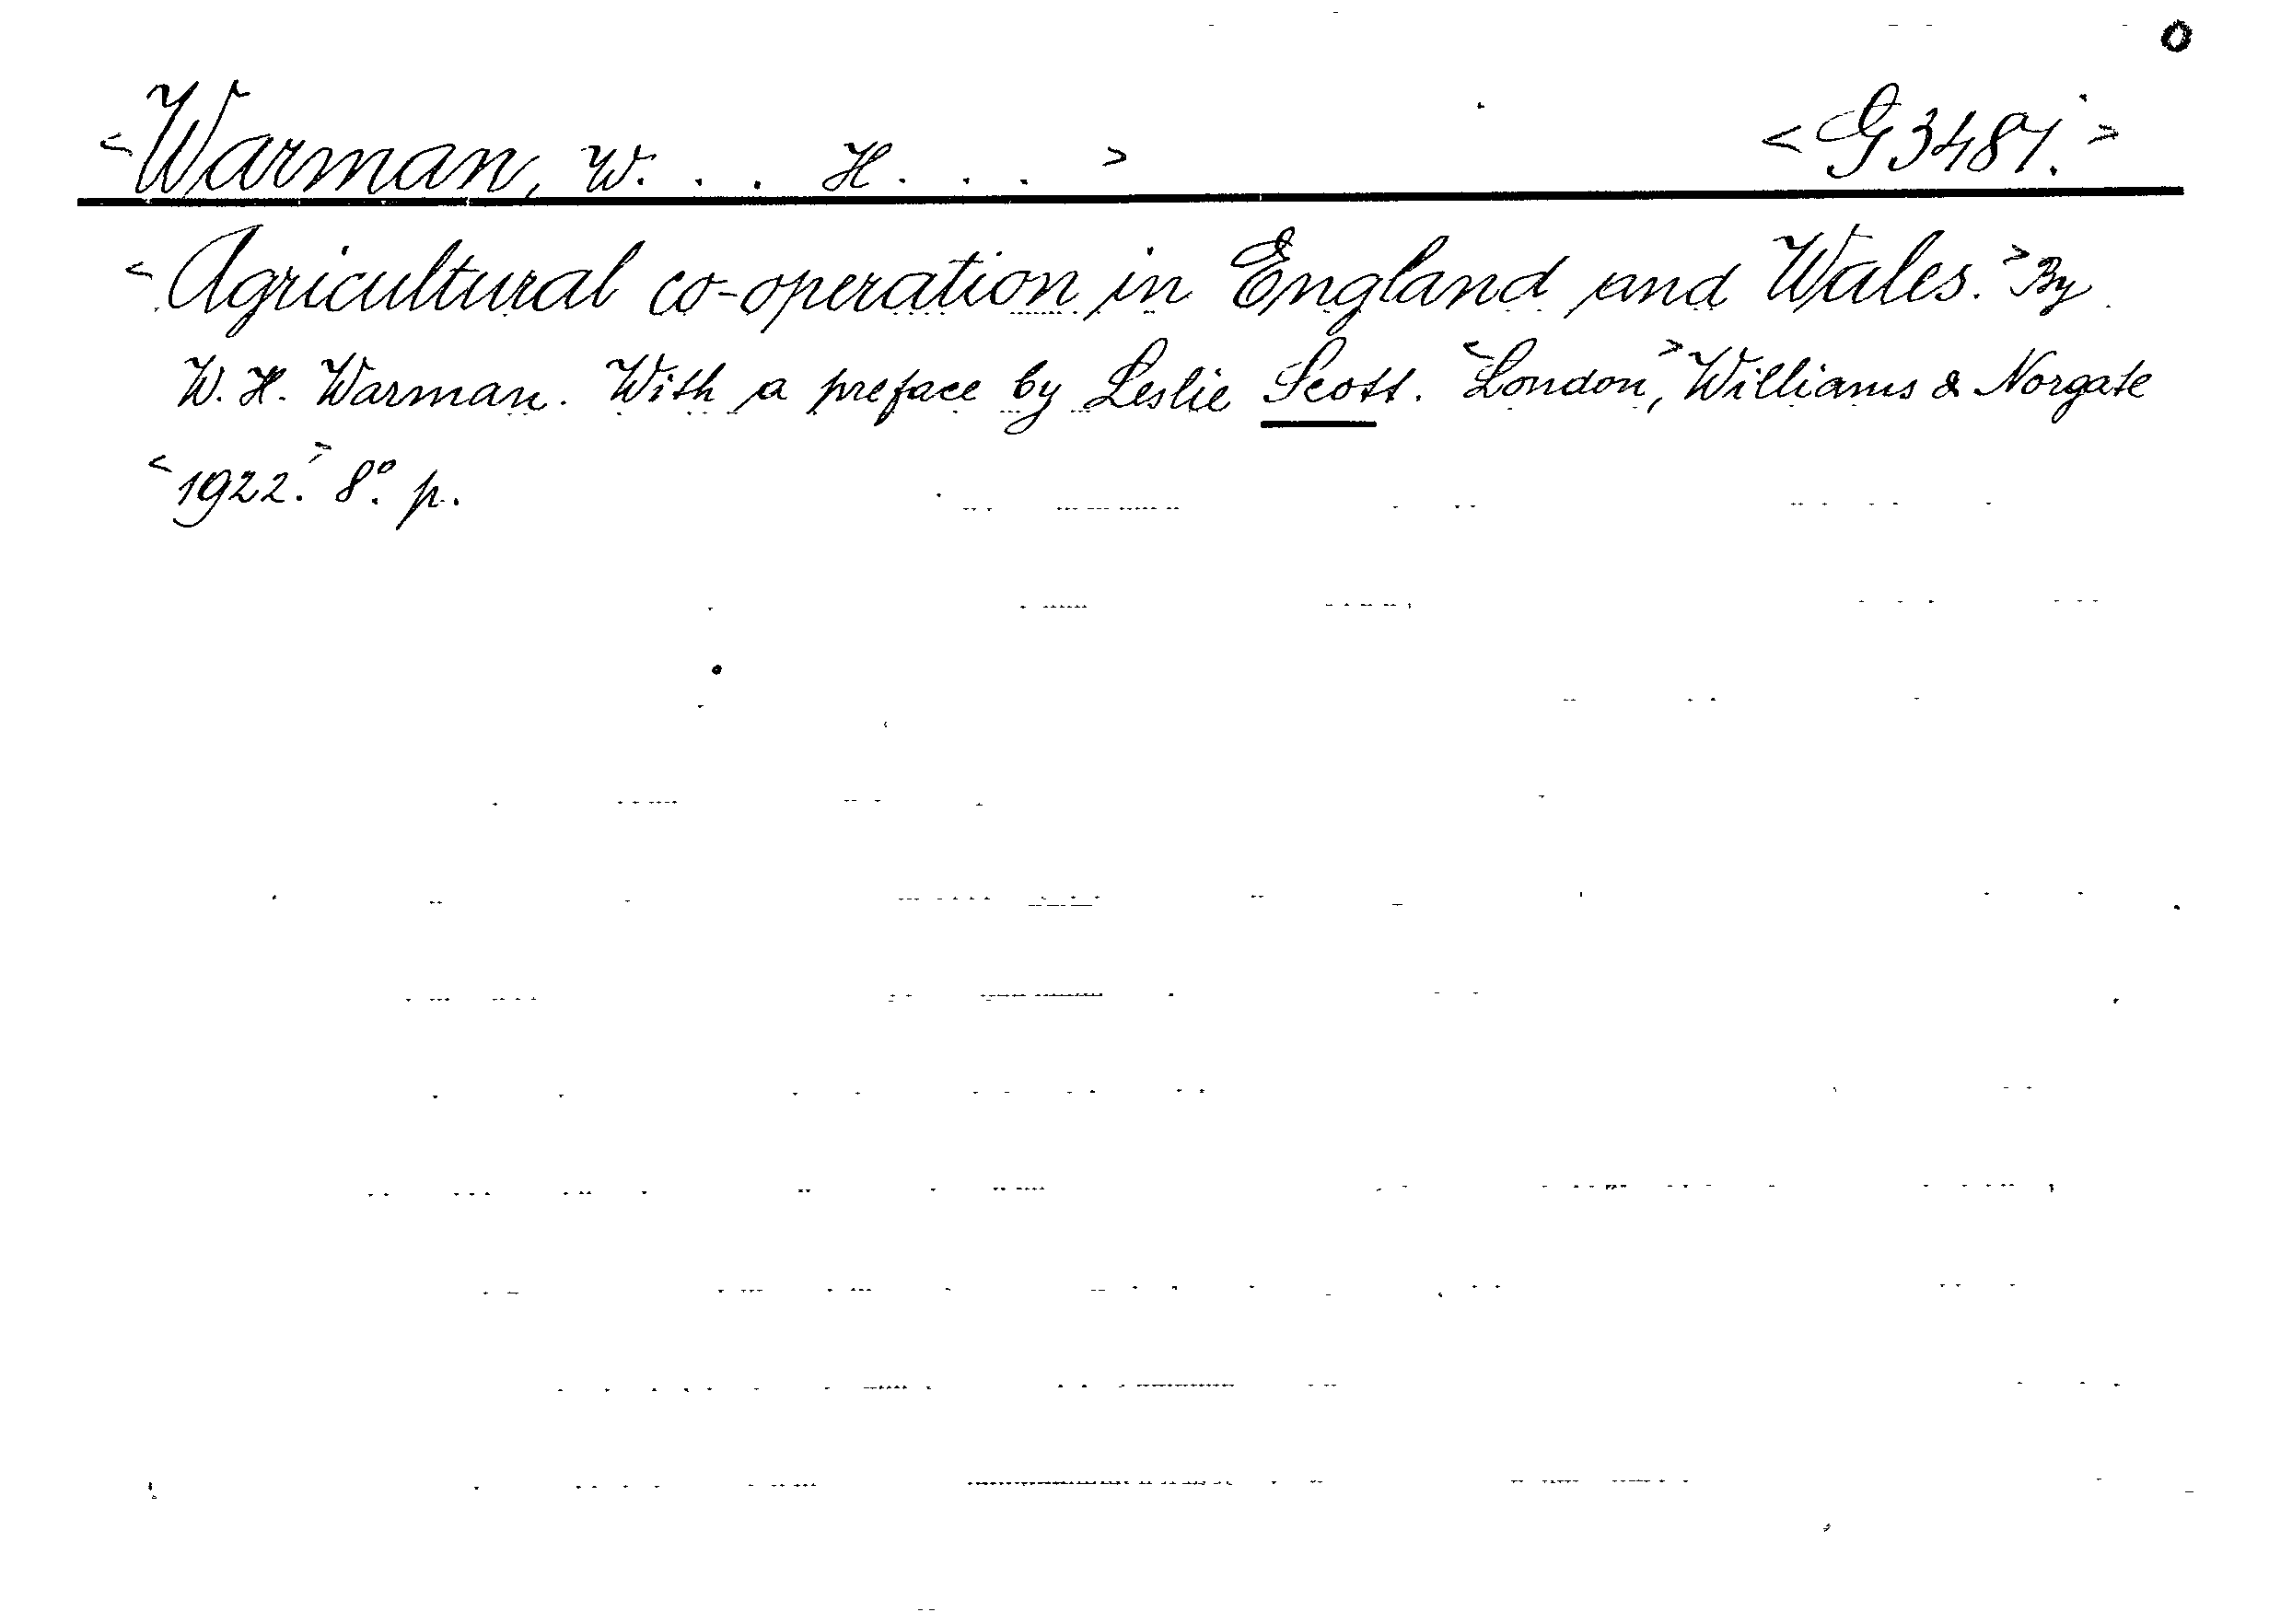 <Warman, W. . . H. . . > <G3481.>
<Agricultural co-operation in England and Wales.> By
W. H. Warman. With a preface by Leslie Scott. <London,> Williams & Norgate
<1922.> 8º. p.